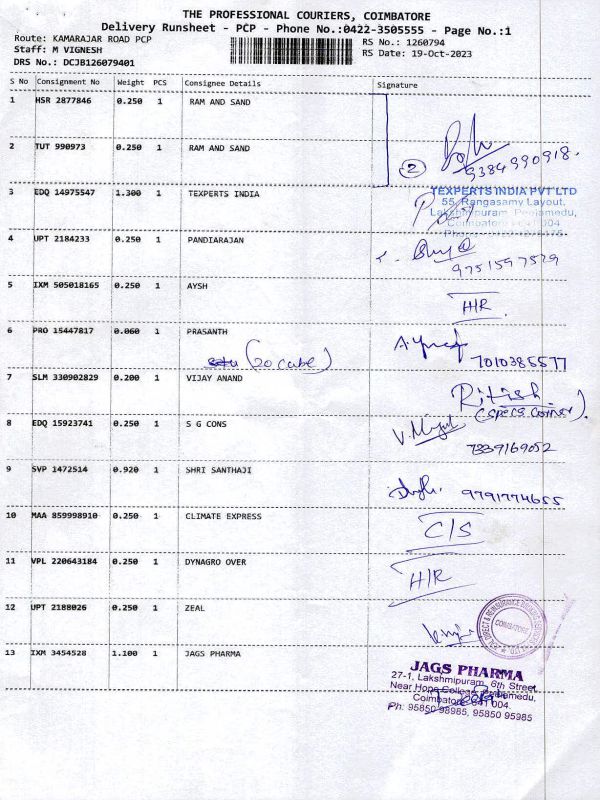 THE PROFESSIONAL COURIERS, COIMBATORE
Delivery Runsheet - PCP - Phone No.:0422-3505555 - Page No.:1
Route: KAMARAJAR ROAD PCP
RS No.: 1260794
Staff: M VIGNESH
RS Date: 19-Oct-2023
DRS No.: DCJB126079401
S No Consignment No Weight PCS Consignee Details Signature
1 HSR 2877846 0.250 1 RAM AND SAND
2 TUT 990973 0.250 1 RAM AND SAND
2 9384990918.
3 EDQ 14975547 1.300 1 TEXPERTS INDIA
TEXPERTS INDIA PVT LTD
55, Rangasamy Layout,
Lakshmipuram, Peelamedu,
Coimbatore - 641 004
4 UPT 2184233 0.250 1 PANDIARAJAN
9751597529
5 IXM 505018165 0.250 1 AYSH
H/R
6 PRO 15447817 0.060 1 PRASANTH
(20 cube)
7010385577
7 SLM 330902829 0.200 1 VIJAY ANAND
Ritish.
(specs corner).
8 EDQ 15923741 0.250 1 S G CONS
7339169052
9 SVP 1472514 0.920 1 SHRI SANTHAJI
9791774655
10 MAA 859998910 0.250 1 CLIMATE EXPRESS
C/S
11 VPL 220643184 0.250 1 DYNAGRO OVER
H/R
12 UPT 2188026 0.250 1 ZEAL
COIMBATORE
13 IXM 3454528 1.100 1 JAGS PHARMA
JAGS PHARMA
27-1, Lakshmipuram, 6th Street,
Near Hope College, Peelamedu,
Coimbatore - 641 004.
Ph: 95850 98985, 95850 95985